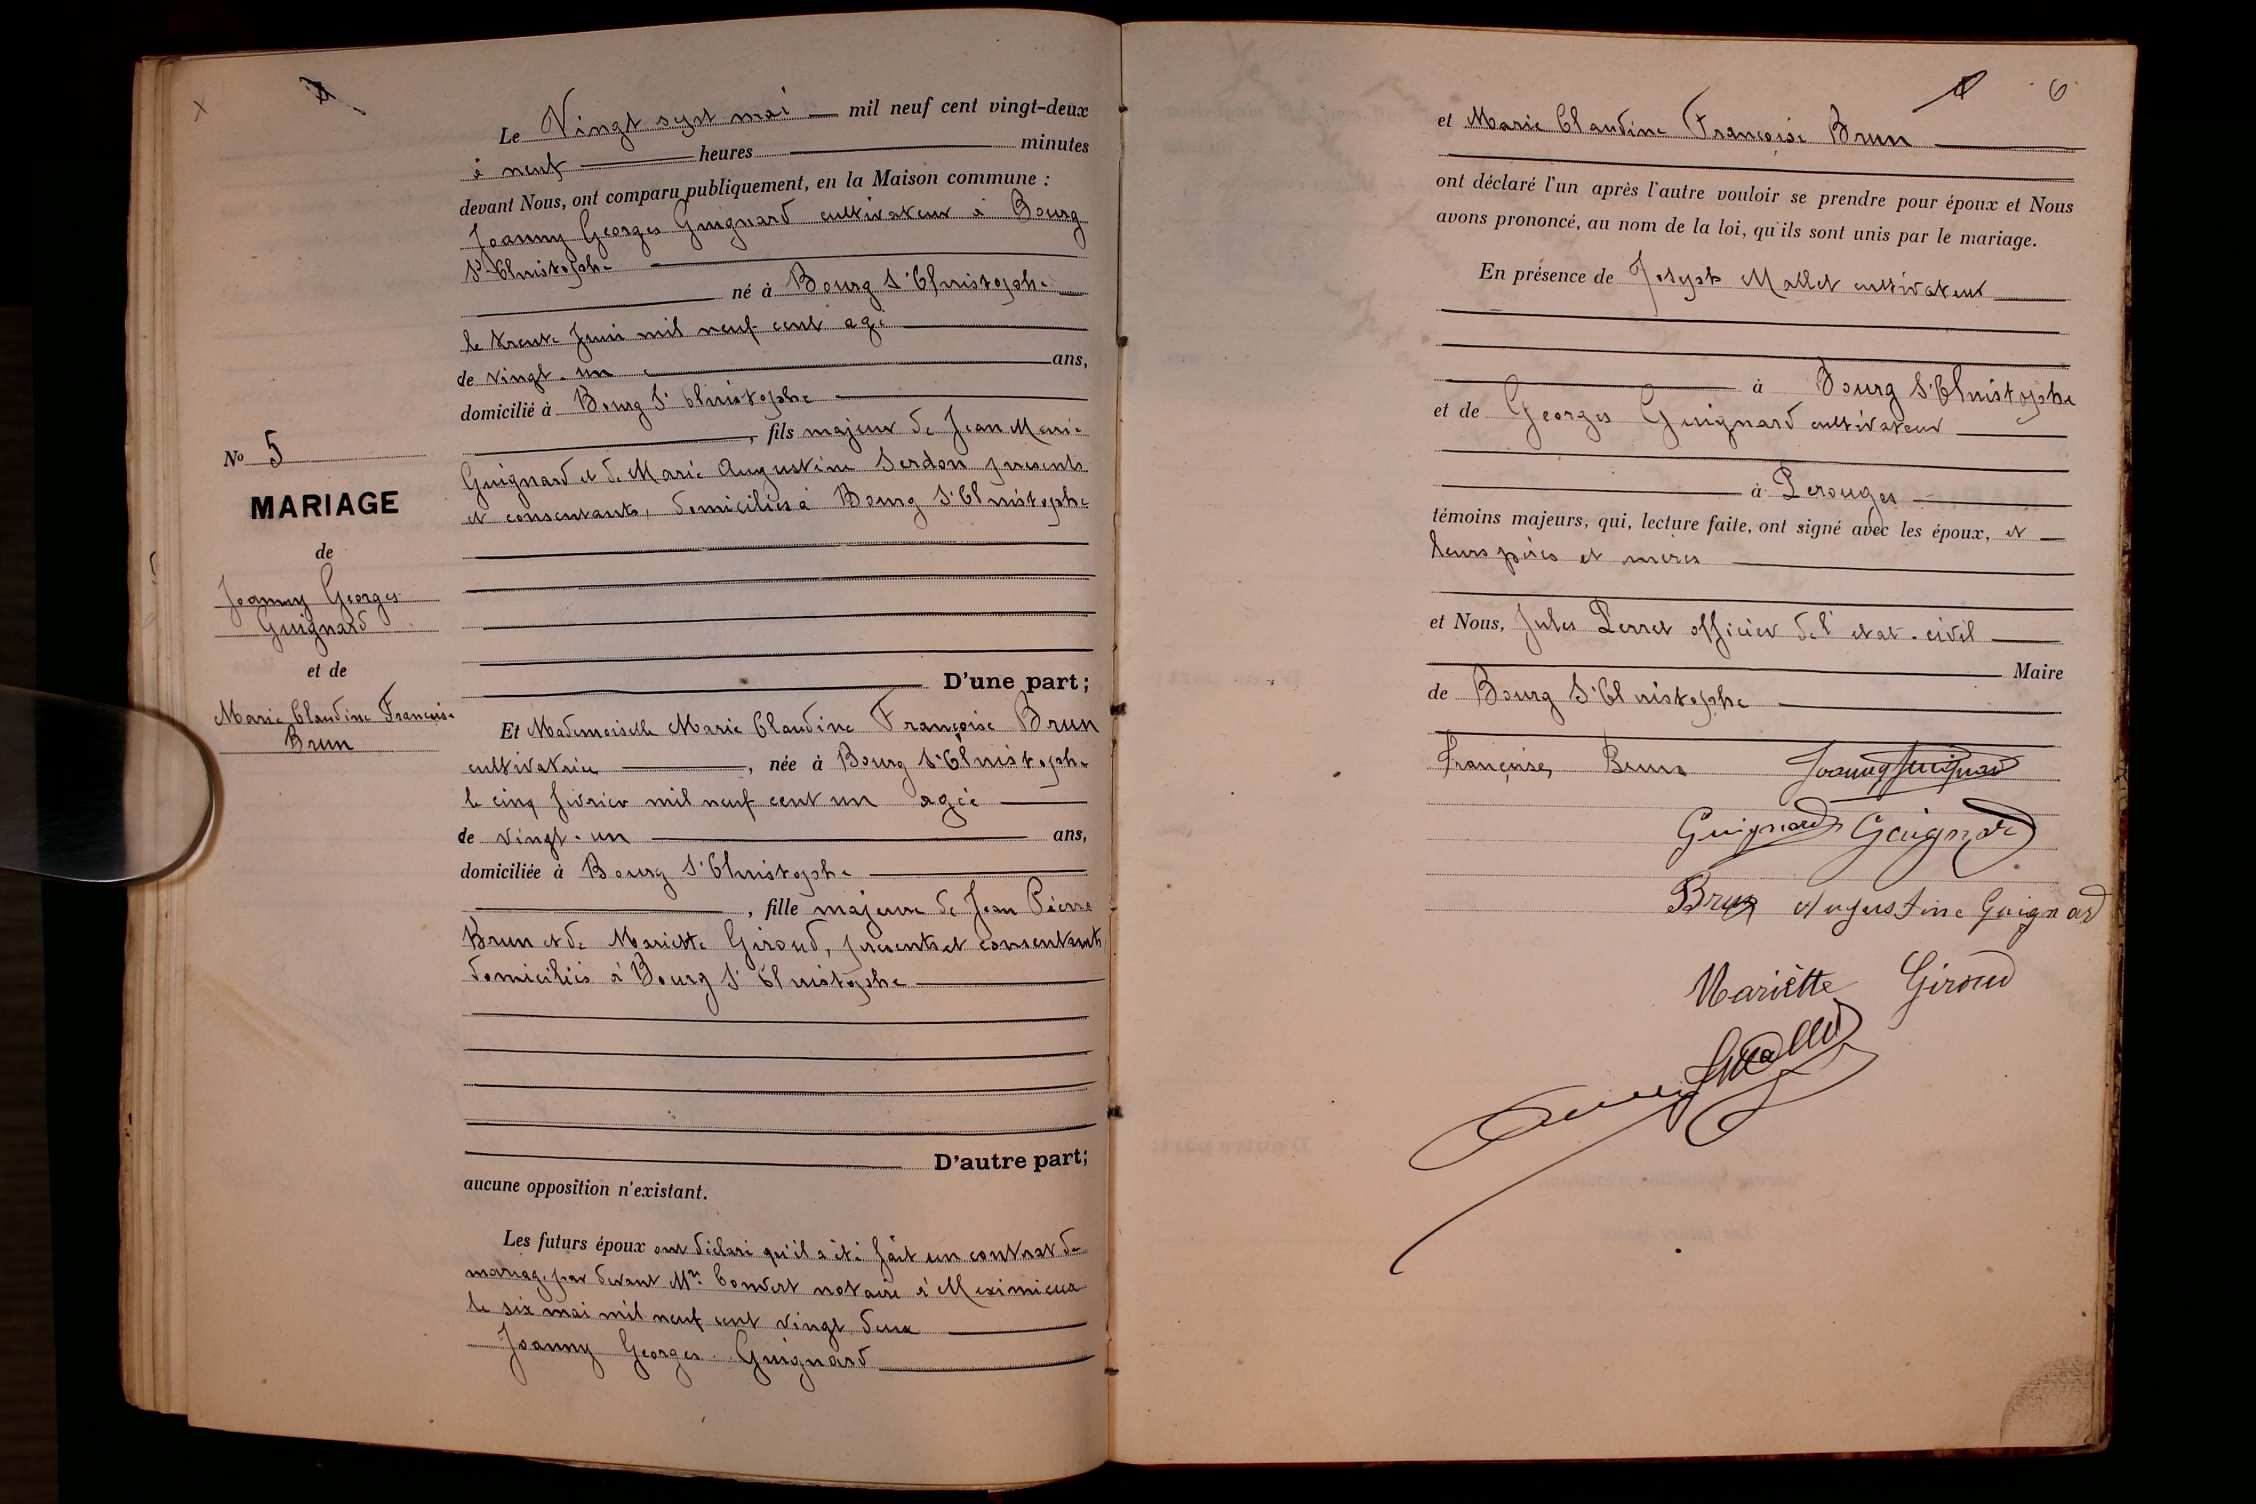 Le Vingt sept mai mil neuf cent vingt-deux
à neuf heures minutes
devant Nous, ont comparu publiquement, en la Maison commune :
Joanny Georges Guignard cultivateur à Bourg
St Christophe
né à Bourg St Christophe
le trente Juin mil neuf cent agé
de vingt-un ans,
domicilié à Bourg St Christophe
, fils majeur de Jean Marie
Guignard et de Marie Augustine Serdon présents
et consentants, domiciliés à Bourg St Christophe
No 5
MARIAGE
de
Joanny Georges
Guignard
et de
Marie Claudine Françoise
Brun
D'une part;
Et Mademoiselle Marie Claudine Françoise Brun
cultivatrice , née à Bourg St Christophe
le cinq février mil neuf cent un agée
de vingt-un ans,
domiciliée à Bourg St Christophe
, fille majeure de Jean Pierre
Brun et de Mariette Giroud, présents et consentants
domiciliés à Bourg St Christophe
D'autre part;
aucune opposition n'existant.
Les futurs époux ont déclaré qu'il a été fait un contrat de
mariage par devant Mr Convert notaire à Meximieux
le six mai mil neuf cent vingt deux
Joanny Georges Guignard
6
et Marie Claudine Françoise Brun
ont déclaré l'un après l'autre vouloir se prendre pour époux et Nous
avons prononcé, au nom de la loi, qu'ils sont unis par le mariage.
En présence de Joseph Mallet cultivateur
à Bourg St Christophe
et de Georges Guignard cultivateur
à Perouges
témoins majeurs, qui, lecture faite, ont signé avec les époux, et
leurs pères et mères
et Nous, Jules Perret officier de l'état-civil
Maire
de Bourg St Christophe
Françoise Brun Joanny Guignard
Guignard Guignard
Brun Augustine Guignard
Mariètte Giroud